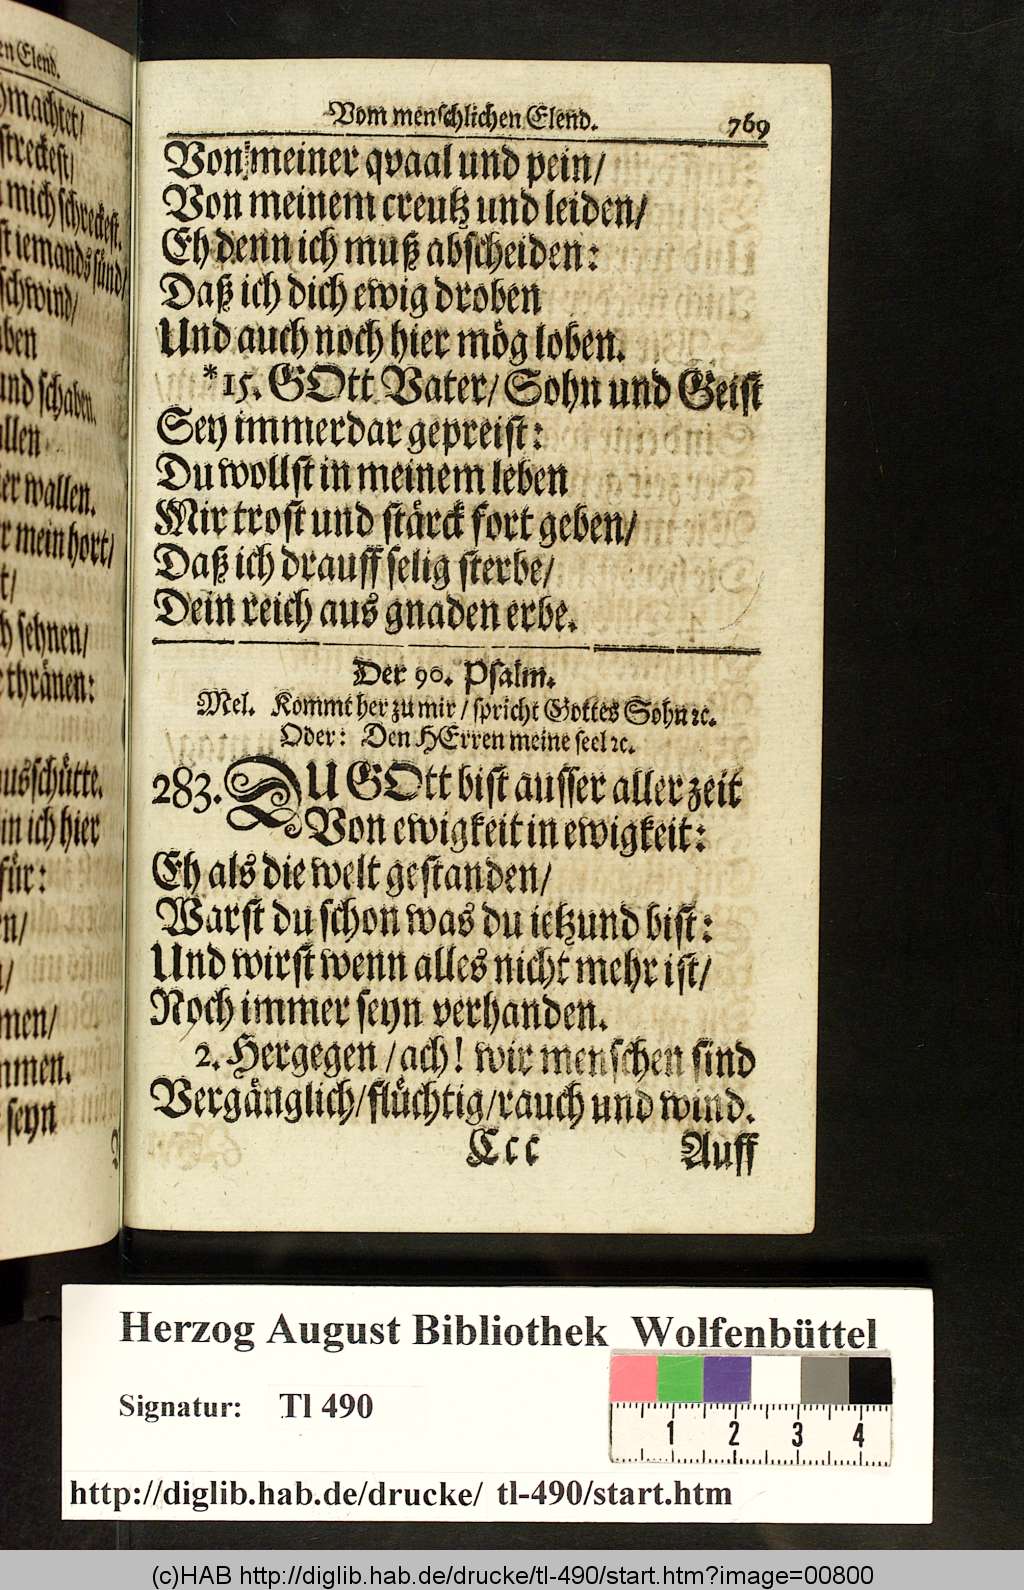 en Elend.
machtet/
streckest/
mich schreckest.
st iemands sünd/
schwind/
aben
und schaben.
allen
er wallen.
r mein hort/
t/
h sehnen/
thränen:
ausschütte.
in ich hier
für:
n/
/
men/
mmen.
seyn
Vom menschlichen Elend. 769
Von meiner qvaal und pein/
Von meinem creutz und leiden/
Eh denn ich muß abscheiden:
Daß ich dich ewig droben
Und auch noch hier mög loben.
*15. GOtt Vater/ Sohn und Geist
Sey immerdar gepreist:
Du wollst in meinem leben
Mir trost und stärck fort geben/
Daß ich drauff selig sterbe/
Dein reich aus gnaden erbe.
Der 90. Psalm.
Mel. Kommt her zu mir / spricht Gottes Sohn ꝛc.
Oder: Den HErren meine seel ꝛc.
283. DU GOtt bist ausser aller zeit
Von ewigkeit in ewigkeit:
Eh als die welt gestanden/
Warst du schon was du ietzund bist:
Und wirst wenn alles nicht mehr ist/
Noch immer seyn verhanden.
2. Hergegen / ach! wir menschen sind
Vergänglich/ flüchtig/ rauch und wind.
Ccc Auff
Herzog August Bibliothek Wolfenbüttel
Signatur: Tl 490
1 2 3 4
http://diglib.hab.de/drucke/ tl-490/start.htm
(c)HAB http://diglib.hab.de/drucke/tl-490/start.htm?image=00800